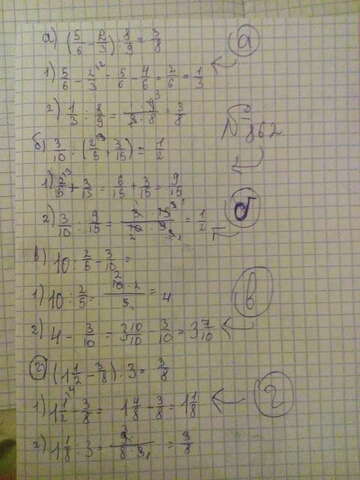 а) (5/6 - 2/3) : 8/9 = 3/8
а
1) 5/6 - 2/3 = 5/6 - 4/6 = 2/6 = 1/3
2) 1/3 : 8/9 = 3/8
№ 862
б) 3/10 : (2/5 + 3/15) = 1/2
1) 2/5 + 3/15 = 6/15 + 3/15 = 9/15
б
2) 3/10 : 9/15 = 3 · 15 / 10 · 9 = 1/2
в) 10 : 2/5 - 3/10 =
в
1) 10 · 2/5 = 10 · 2 / 5 = 4
2) 4 - 3/10 = 3 10/10 - 3/10 = 3 7/10
г) (1 1/2 - 3/8) : 3 = 3/8
г
1) 1 1/2 - 3/8 = 1 4/8 - 3/8 = 1 1/8
2) 1 1/8 : 3 = 9 / 8 · 3 = 3/8